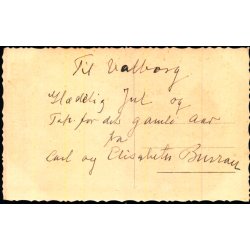 Til Valborg
Glædelig Jul og
Tak for det gamle Aar
fra
Carl og Elisabeth